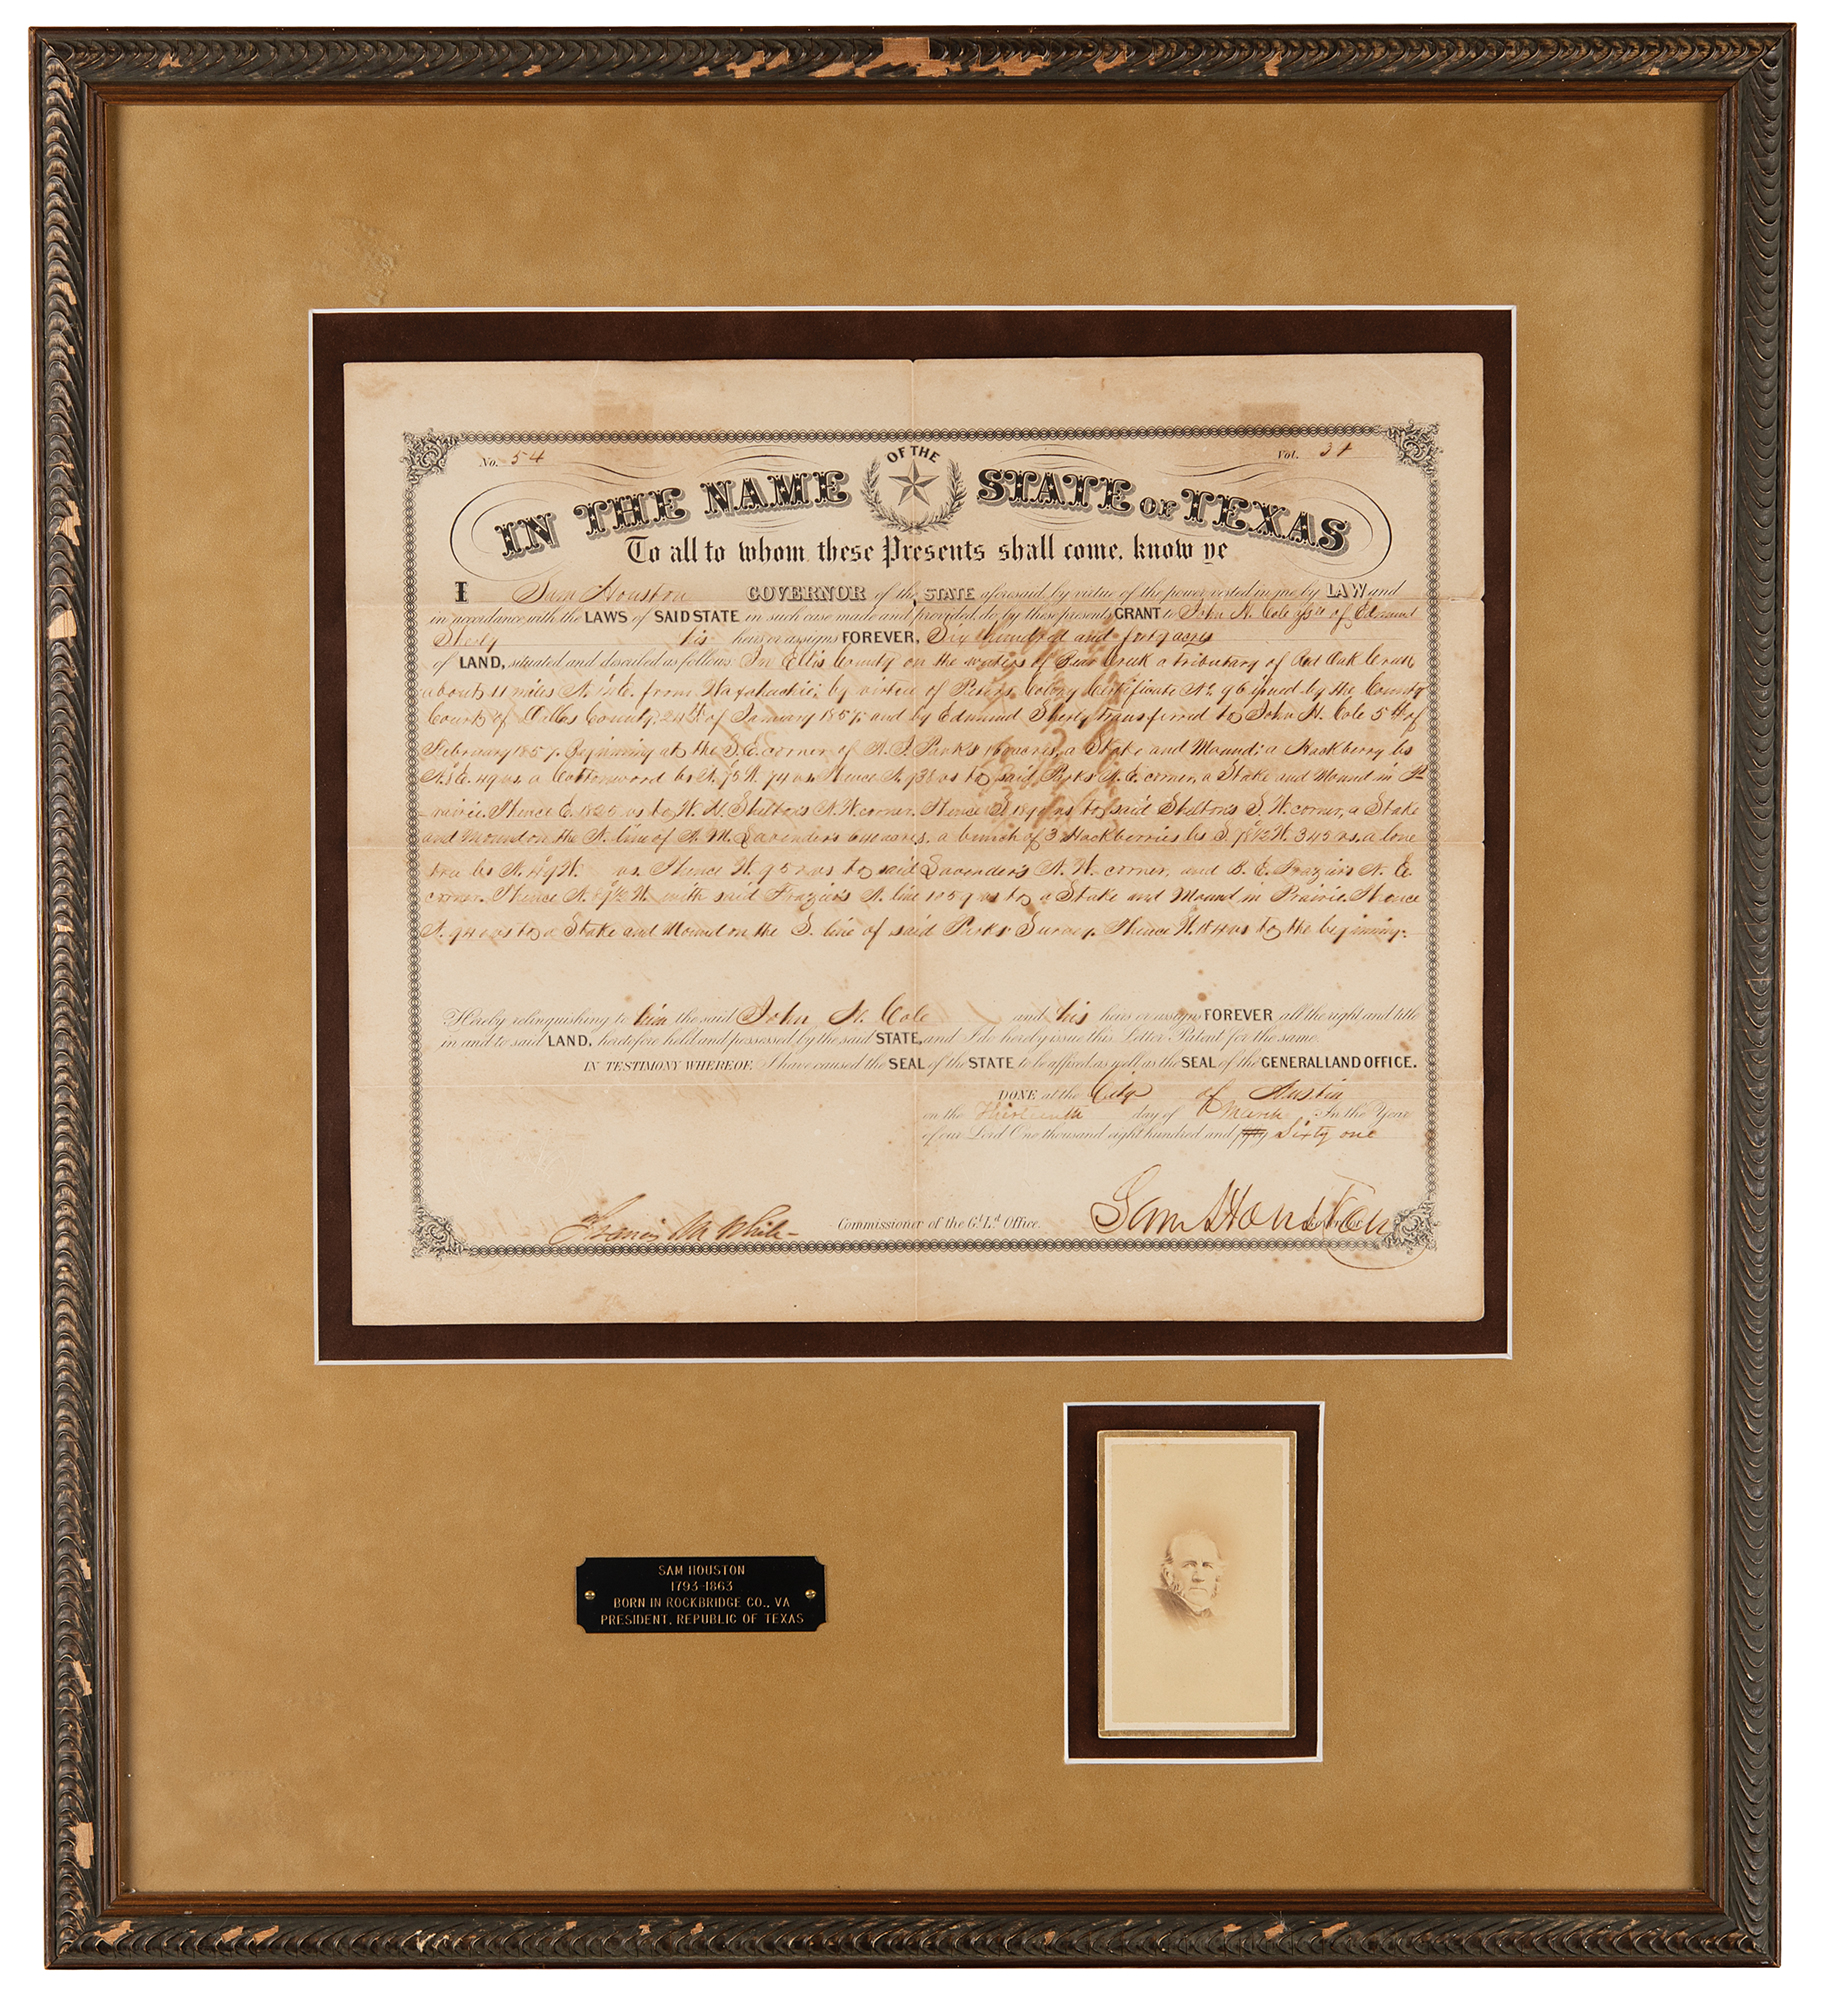 No. 54
Vol. 34
IN THE NAME OF THE STATE OF TEXAS
To all to whom these Presents shall come, know ye
I Sam Houston GOVERNOR of the STATE aforesaid, by virtue of the power vested in me by LAW and
in accordance with the LAWS of SAID STATE in such case made and provided, do by these presents GRANT to John H. Cole assee of Edmund
his heirs or assigns FOREVER, Six hundred and forty acres
of LAND, situated and described as follows: In Ellis County on the waters of Bear Creek a tributary of Red Oak Creek
about 11 miles N. E. from Waxahachie; by virtue of Peters Colony Certificate No. 96 issued by the County
Court of Dallas County, 24th of January 1857, and by Edmund transferred to John H. Cole 5th of
February 1857. Beginning at the S. E. corner of Parks 160 acres, a Stake and Mound; a Hackberry bs
a Cottonwood bs 74 vs. Thence to said Parks N. E. corner, a Stake and Mound in P-
rairie. Thence E. 1825 vs to W. H. Shelton's N. W. corner. Thence S. to said Shelton's S. W. corner, a Stake
and Mound on the N. line of Lavender's 640 acres, a bunch of 3 Hackberries bs 345 vs. a lone
tree bs vs. Thence W. 952 vs to said Lavender's N. W. corner, and B. E. Frazier's N. E.
corner. Thence with said Frazier's N. line 1859 vs to a Stake and Mound in Prairie. Thence
N. 940 vs to a Stake and Mound on the S. line of said Parks' Survey. Thence to the beginning.
Hereby relinquishing to him the said John H. Cole and his heirs or assigns FOREVER all the right and title
in and to said LAND, heretofore held and possessed by the said STATE, and I do hereby issue this Letter Patent for the same.
IN TESTIMONY WHEREOF, I have caused the SEAL of the STATE to be affixed, as well as the SEAL of the GENERAL LAND OFFICE.
DONE at the City of Austin
on the Thirteenth day of March In the Year
of our Lord One thousand eight hundred and fifty Sixty one
Francis M. White Commissioner of the Gl. Ld. Office.
Sam Houston
SAM HOUSTON
1793-1863
BORN IN ROCKBRIDGE CO., VA
PRESIDENT, REPUBLIC OF TEXAS